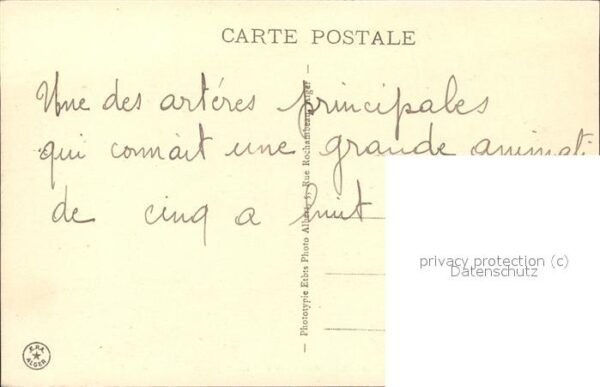 CARTE POSTALE
Une des artéres principales
qui connait une grande animati
de cinq a huit
— Phototypie Etbts Photo Albert, 5, Rue Rochambeau, Alger —
privacy protection (c)
Datenschutz
E.P.A.
ALGER